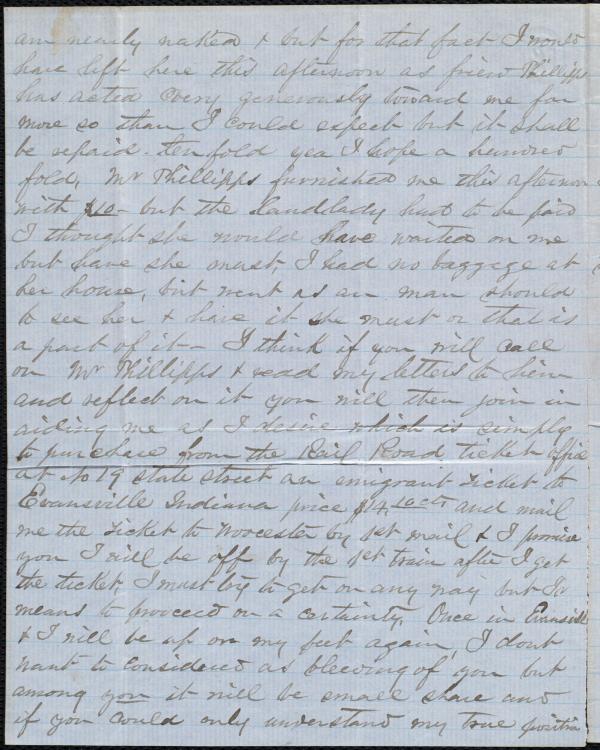 am nearly naked & but for that fact I would
have left here this afternoon as friend Phillipps
has acted very generously toward me far
more so than I could expect but it shall
be repaid - ten fold yea I hope a hundred
fold, Mr Phillipps furnished me this afternoon
with $10 - but the landlady had to be paid
I thought she would have waited on me
but have she must, I had no baggage at
her house, but went as an man should
to see her & have it she must or that is
a part of it - I think if you will call
on Mr Phillipps & read my letters to him
and reflect on it you will then join in
aiding me as I desire which is simply
to purchase from the Rail Road ticket office
at No 19 state street an emigrant ticket to
Evansville Indiana price $14,10 cts and mail
me the ticket to Worcester by 1st mail & I promise
you I will be off by the 1st train after I get
the ticket, I must try to get on any way but
means to proceed on a certainty. Once in Evansville
& I will be up on my feet again, I dont
want to considered as bleeding of you but
among you it will be small share and
if you could only understand my true position